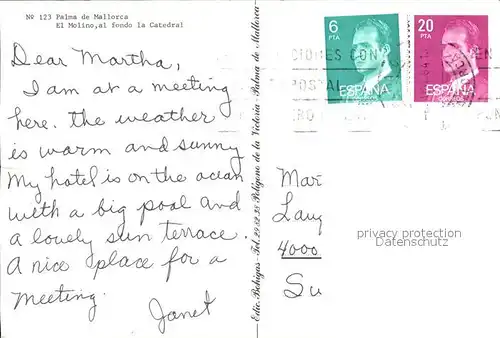 Nº 123 Palma de Mallorca
El Molino, al fondo la Catedral
Dear Martha,
I am at a meeting
here. the weather
is warm and sunny
My hotel is on the ocean
with a big pool and
a lovely sun terrace.
A nice place for a
meeting.
Janet
Edic. Bohigas - Tel. 29.32.38 Polígono de la Victoria - Palma de Mallorca
6
PTA
ESPAÑA
20
PTA
ESPAÑA
CIONES CON
POSTAL
Mar
Laug
4000
Su
privacy protection
Datenschutz